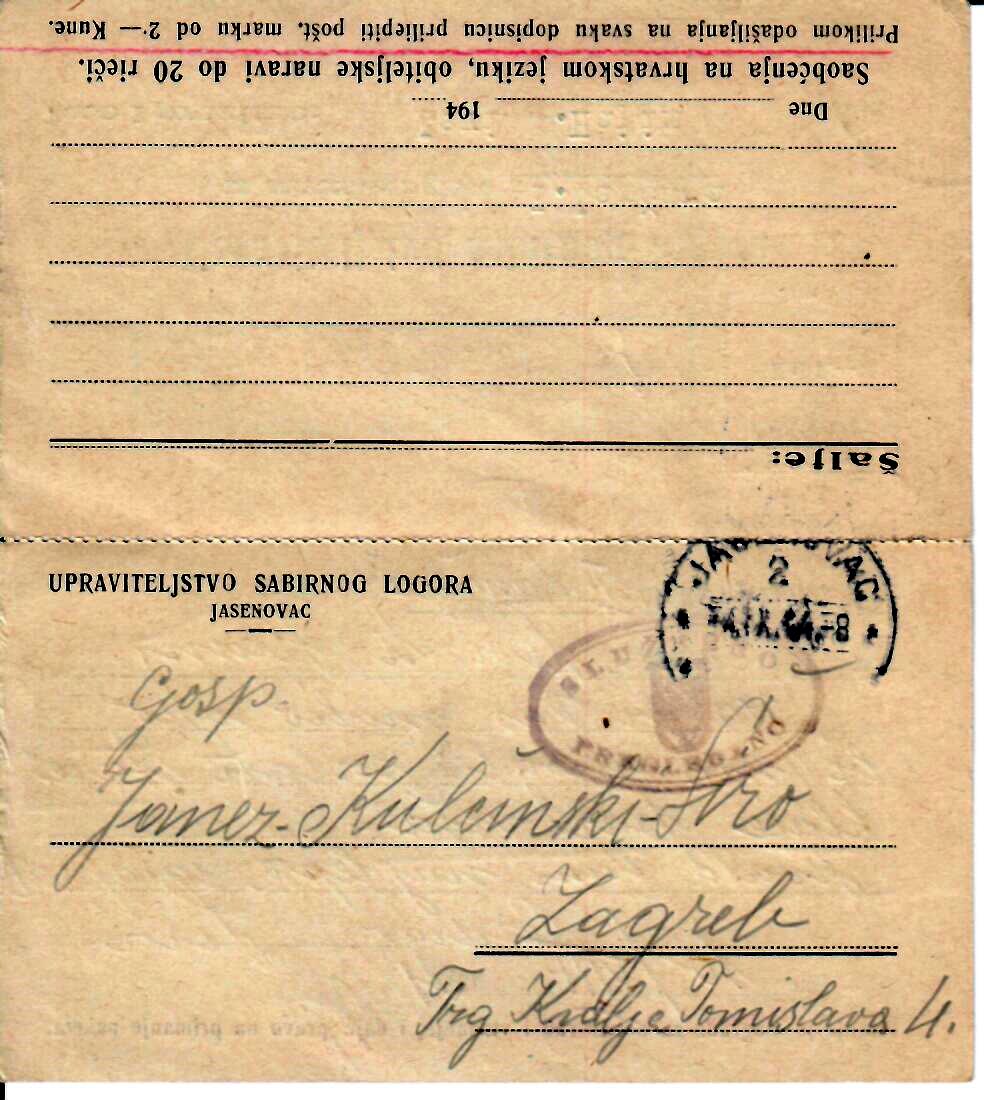 Prilikom odašiljanja na svaku dopisnicu priliepiti pošt. marku od 2·— Kune.
Saobćenja na hrvatskom jeziku, obiteljske naravi do 20 rieči.
Dne 194
Šalje:
UPRAVITELJSTVO SABIRNOG LOGORA
JASENOVAC
JASENOVAC
2
SLUŽBENO
PREGLEDANO
Gosp.
Janez-
Zagreb
Trg Kralja Tomislava 4.